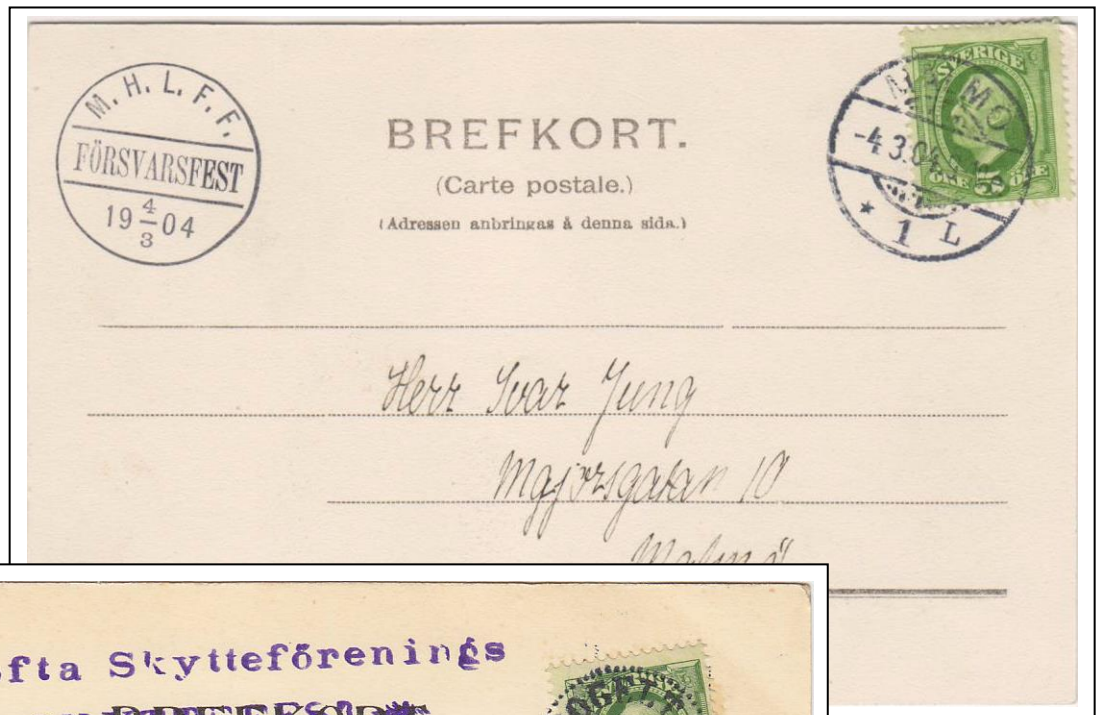 M. H. L. F. F.
FÖRSVARSFEST
19 4/3 04
BREFKORT.
(Carte postale.)
(Adressen anbringas å denna sida.)
SVERIGE
5
ÖRE ÖRE
MALMÖ
-4.3.04
* 1 L
Herr Ivar Jung
Majorsgatan 10
Malmö
fta Skytteförenings
BREFKORT